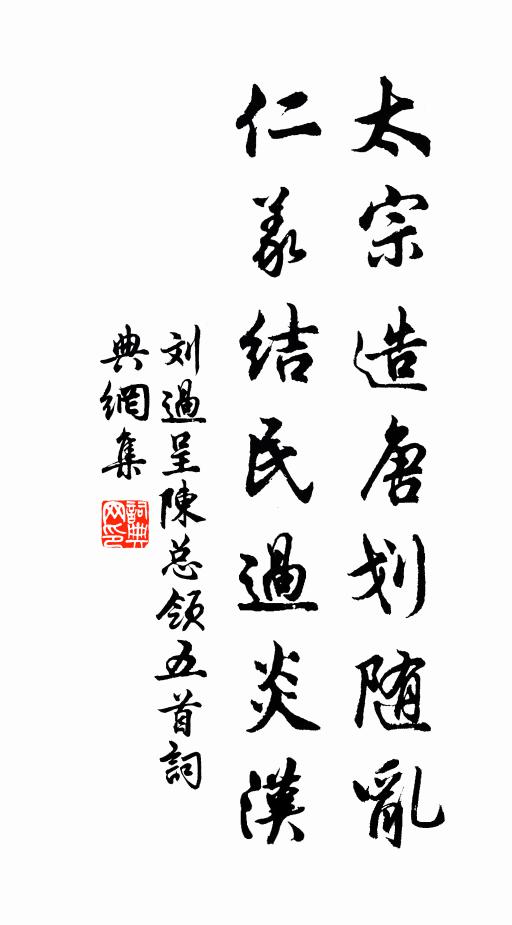 太宗造唐划随亂
仁義结民過炎漢
刘過呈陳总領五首詞
典網集
詞典网印